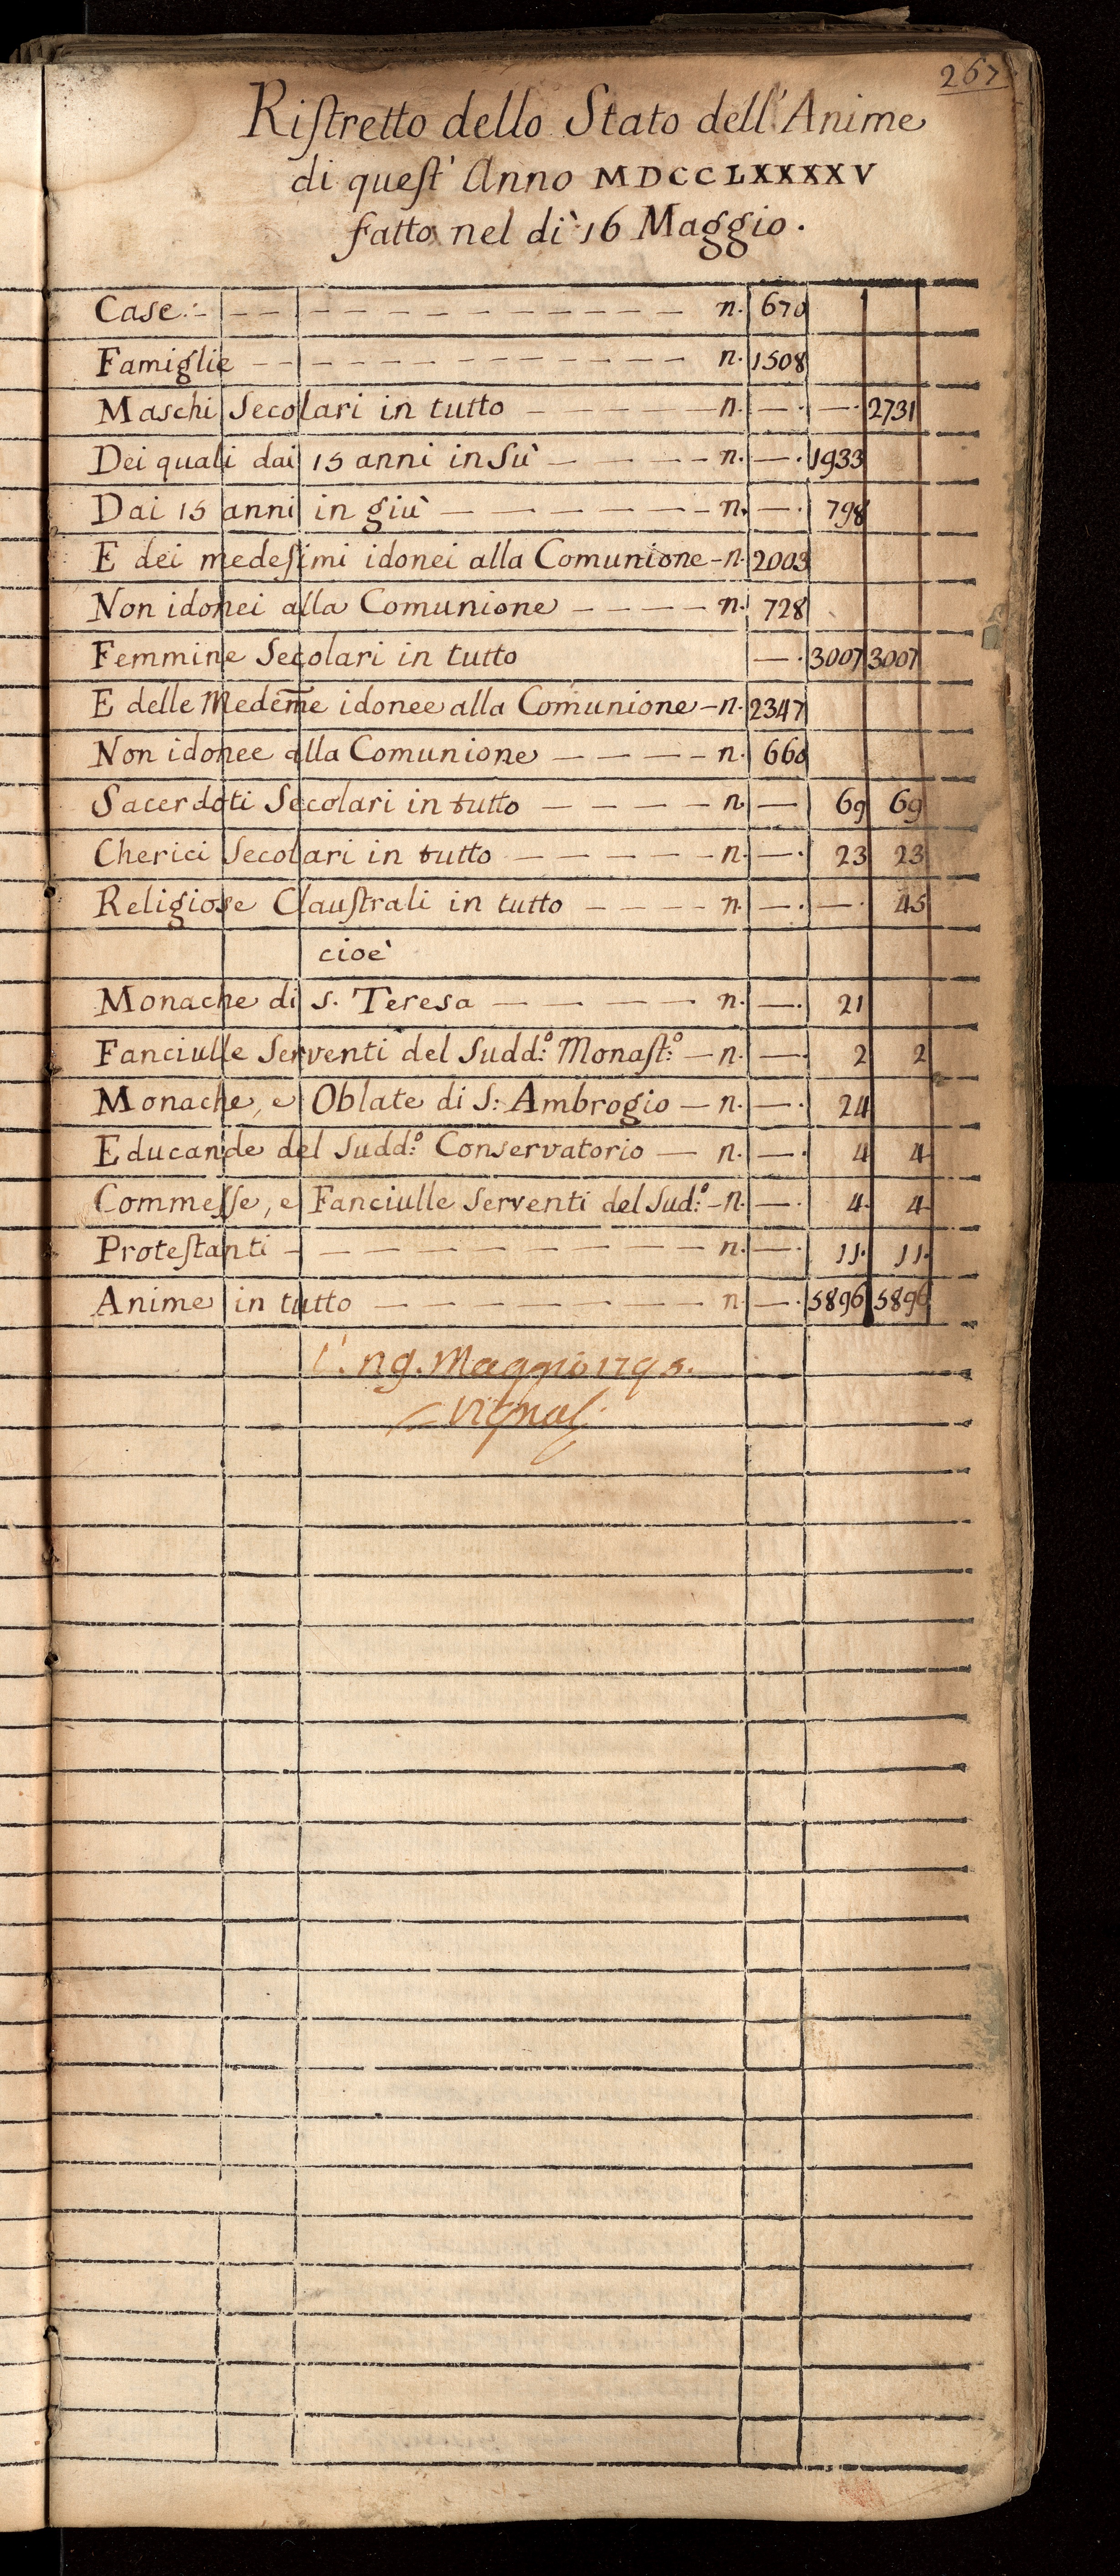 267
Riſtretto dello Stato dell'Anime
di queſt' Anno MDCCLXXXXV
fatto nel di 16 Maggio.
Case. - - - - - - - - - - n. 670
Famiglie - - - - - - - - - n. 1508
Maschi Secolari in tutto - - - - - n. - - 2731
Dei quali dai 15 anni in Sù - - - - n. - 1933
Dai 15 anni in giù - - - - - - n. - 798
E dei medeſimi idonei alla Comunione - n. 2003
Non idonei alla Comunione - - - - n. 728
Femmine Secolari in tutto - 3007 3007
E delle Medem̄e idonee alla Comunione - n. 2347
Non idonee alla Comunione - - - - n. 660
Sacerdoti Secolari in tutto - - - - n. - 69 69
Cherici Secolari in tutto - - - - - n. - 23 23
Religiose Clauſtrali in tutto - - - - n. - - 45
cioè
Monache di S. Teresa - - - - - n. - 21
Fanciulle Serventi del Sudd:º Monaſt:º - n. - 2 2
Monache, e Oblate di S: Ambrogio - n. - 24
Educande del Sudd:º Conservatorio - n. - 4 4
Commeſſe, e Fanciulle Serventi del Sud:º - n. - 4 4
Proteſtanti - - - - - - - - n. - 11. 11.
Anime in tutto - - - - - - - n - 5896 5896
Maggio 1795.